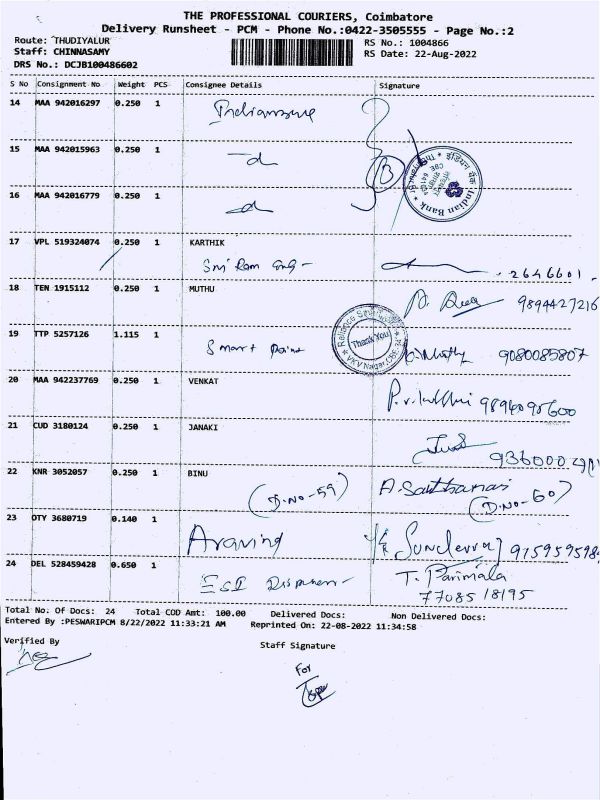 THE PROFESSIONAL COURIERS, Coimbatore
Delivery Runsheet - PCM - Phone No.:0422-3505555 - Page No.:2
Route: THUDIYALUR
RS No.: 1004866
Staff: CHINNASAMY
RS Date: 22-Aug-2022
DRS No.: DCJB100486602
S No Consignment No Weight PCS Consignee Details Signature
14 MAA 942016297 0.250 1
15 MAA 942015963 0.250 1
Indian Bank
इंडियन बैंक
16 MAA 942016779 0.250 1
17 VPL 519324074 0.250 1 KARTHIK
Sri Ram 2646601
18 TEN 1915112 0.250 1 MUTHU
9894427216
19 TTP 5257126 1.115 1
Smart Point 9080085807
Reliance Smart
Thank You!
20 MAA 942237769 0.250 1 VENKAT
21 CUD 3180124 0.250 1 JANAKI
22 KNR 3052057 0.250 1 BINU
(D.NO-59) (D.NO-60)
23 OTY 3680719 0.140 1
Aravind
24 DEL 528459428 0.650 1
ESI T. Parimala
77085 18195
Total No. Of Docs: 24 Total COD Amt: 100.00 Delivered Docs: Non Delivered Docs:
Entered By :PESWARIPCM 8/22/2022 11:33:21 AM Reprinted On: 22-08-2022 11:34:58
Verified By
Staff Signature
For